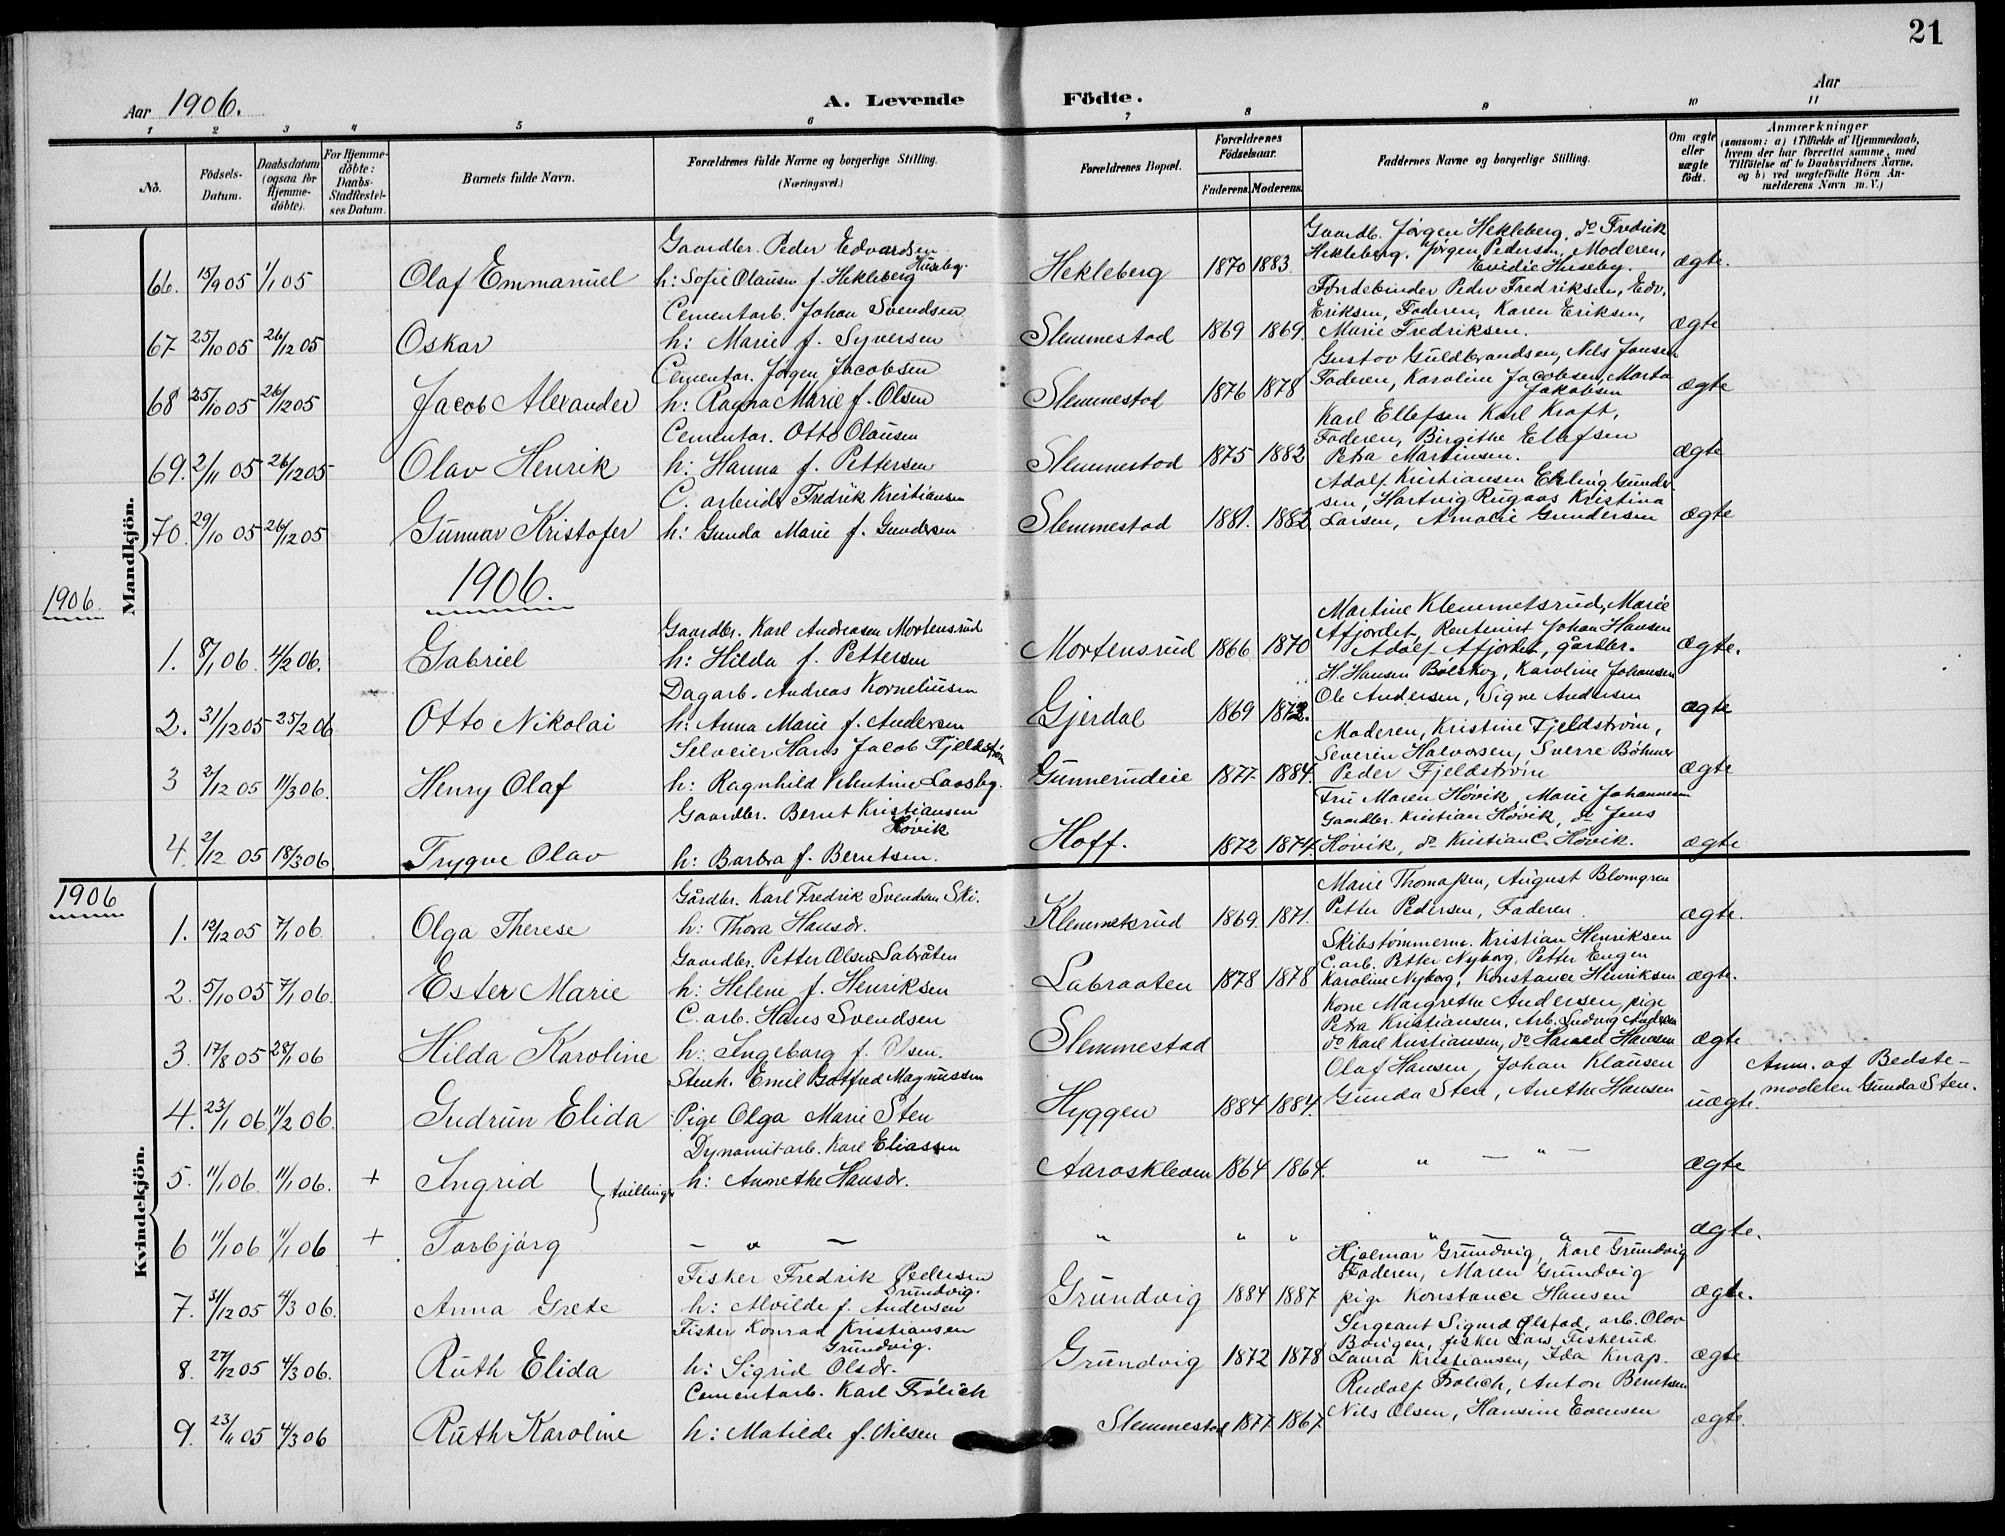 21
Aar 1906.
A. Levende Födte.
Aar
1 2 3 4 5 6 7 8 9 10 11
No.
Födsels-Datum.
Daabsdatum (ogsaa for Hjemme-döbte).
For Hjemme-döbte: Daabs-Stadfæstel-ses Datum.
Barnets fulde Navn.
Forældrenes fulde Navne og borgerlige Stilling. (Næringsvei.)
Forældrenes Bopæl.
Forældrenes Födselsaar.
Faderens. Moderens.
Faddernes Navne og borgerlige Stilling.
Om ægte eller uægte födt.
Anmærkninger (saasom: a) i Tilfælde af Hjemmedaab, hvem der har forrettet samme, med Tilföielse af to Daabsvidners Navne, og b) ved uægtefödte Börn An-melderens Navn m. V.)
Mandkjön.
Gaardbr. Peder Edvardsen Huseby.
Gaardb. Jørgen Hekleberg, do Fredrik
Hekleberg, Jørgen Pedersen, Moderen,
Evidie Huseby.
66. 15/9 05 1/1 05 Olaf Emmanuel h: Sofie Olausen f. Hekleberg Hekleberg 1870 1883 ægte.
Cementarb. Johan Svendsen
Peder Fredriksen, Edv.
Eriksen, Faderen, Karen Eriksen,
67 25/10 05 26/12 05 Oskar h: Marie f. Syversen Slemmestad 1869 1869. Marie Fredriksen. ægte
Cementar. Jørgen Jacobsen
Gustav Guldbrandsen, Nils Jansen
68 25/10 05 26/12 05 Jacob Alexander h: Ragna Marie f. Olsen Slemmestad 1876 1878 Faderen, Karoline Jacobsen, Marta Jakobsen ægte
Cementar. Otto Olausen
Karl Ellefsen Karl Kraft,
Faderen, Birgithe Ellefsen
69. 2/11 05 26/12 05 Olav Henrik h: Hanna f. Pettersen Slemmestad 1875 1882 Petra Martinsen. ægte
C. arbeid. Fredrik Kristiansen
Adolf Kristiansen Erling Gunder-
sen, Hartvig Rugaas Kristina
70. 29/10 05 26/12 05 Gunnar Kristofer h: Gunda Marie f. Gundersen Slemmestad 1881. 1882 Larsen, Amalie Gundersen ægte
1906.
1906.
Gaardbr. Karl Andreasen Mortensrud
Martine Klemmetsrud, Marie
Afjordet, Rentenist Johan Hansen
1. 8/1 06. 4/2 06. Gabriel h: Hilda f. Pettersen Mortensrud 1866 1870 Adolf Afjordet, gårdbr. ægte.
Dagarb. Andreas Korneliusen
H. Hansen Bølstog, Karoline Johansen
Ole Andersen, Signe Andersen
2. 31/12 05 25/2 06 Otto Nikolai h: Anna Marie f. Andersen Gjerdal 1869 1872. ægte
Selveier Hans Jacob Fjeldstrøm
Moderen, Kristine Fjeldstrøm,
Severin Halvorsen, Sverre Böhmer
3 2/12 05 11/3 06. Henry Olaf h: Ragnhild Valentine Laasby. Gunnerudeie 1877 1884. Peder Fjeldstrøm ægte
Gaardbr. Bernt Kristiansen Høvik
Fru Maren Høvik, Marie Johannesen
Gaardbr. Kristian Høvik, do Jens
4. 2/12 05 18/3 06. Trygve Olav h: Barbra f. Berntsen. Hoff. 1872 1874. Høvik, do Kristian C. Høvik. ægte
1906
Kvindekjön.
Gårdbr. Karl Fredrik Svendsen Ski.
Marie Thomassen, August Blomgren
1. 12/12 05 7/1 06. Olga Therese h: Thora Hansdr. Klemmetsrud 1869. 1871. Petter Pedersen, Faderen. ægte.
Gaardbr. Petter Olsen Labråten
Skibstømmerm. Kristian Henriksen
C. arb. Petter Nyborg, Petter Engen
2. 5/10 05 7/1 06. Ester Marie h: Helene f. Henriksen Labraaten 1878 1878 Karoline Nyborg, Konstance Henriksen ægte.
C. arb. Hans Svendsen
Kone Margrethe Andersen, pige
Petra Kristiansen, Arb. Ludvig Andersen
3. 17/8 05 28/1 06 Hilda Karoline h: Ingeborg f. Olsen. Slemmestad do Karl Kristiansen, do Harald Hansen ægte
Stenh. Emil Gotfred Magnussen
Olaf Hansen, Johan Klausen
Anm. af Bedste-
moderen Gunda Sten.
4. 23/1 06 11/2 06. Gudrun Elida Pige Olga Marie Sten Hyggen 1884 1884. Gunda Sten, Anethe Hansen uægte.
Dynamitarb. Karl Eliassen
5. 11/1 06. 11/1 06. + Ingrid } tvillinger h: Annethe Hansdr. Aaroskleven 1864 1864. " — " — ægte
6 11/1 06 11/1 06 + Torbjørg — " — " " " " — " — ægte.
Fisker Fredrik Pedersen Grundvig.
Hjalmar Grundvig, Karl Grundvig
Faderen, Maren Grundvig
7. 31/12 05 4/3 06. Anna Grete h: Alvilde f. Andersen Grundvig 1884 1887 pige Konstance Hansen ægte.
Fisker Konrad Kristiansen Grundvig.
Sergeant Sigurd Ølstad, arb. Olav
Bougen, fisker Lars Fiskerud
8. 27/12 05 4/3 06. Ruth Elida h: Sigrid Olsdr. Grundvig 1872 1878 Laura Kristiansen, Ida Knap. ægte
Cementarb. Karl Frölich
Rudolf Frölich, Anton Berntsen
9. 23/11 05 4/3 06 Ruth Karoline h: Matilde f. Nilsen Slemmestad 1877. 1867. Nils Olsen, Hansine Evensen ægte.